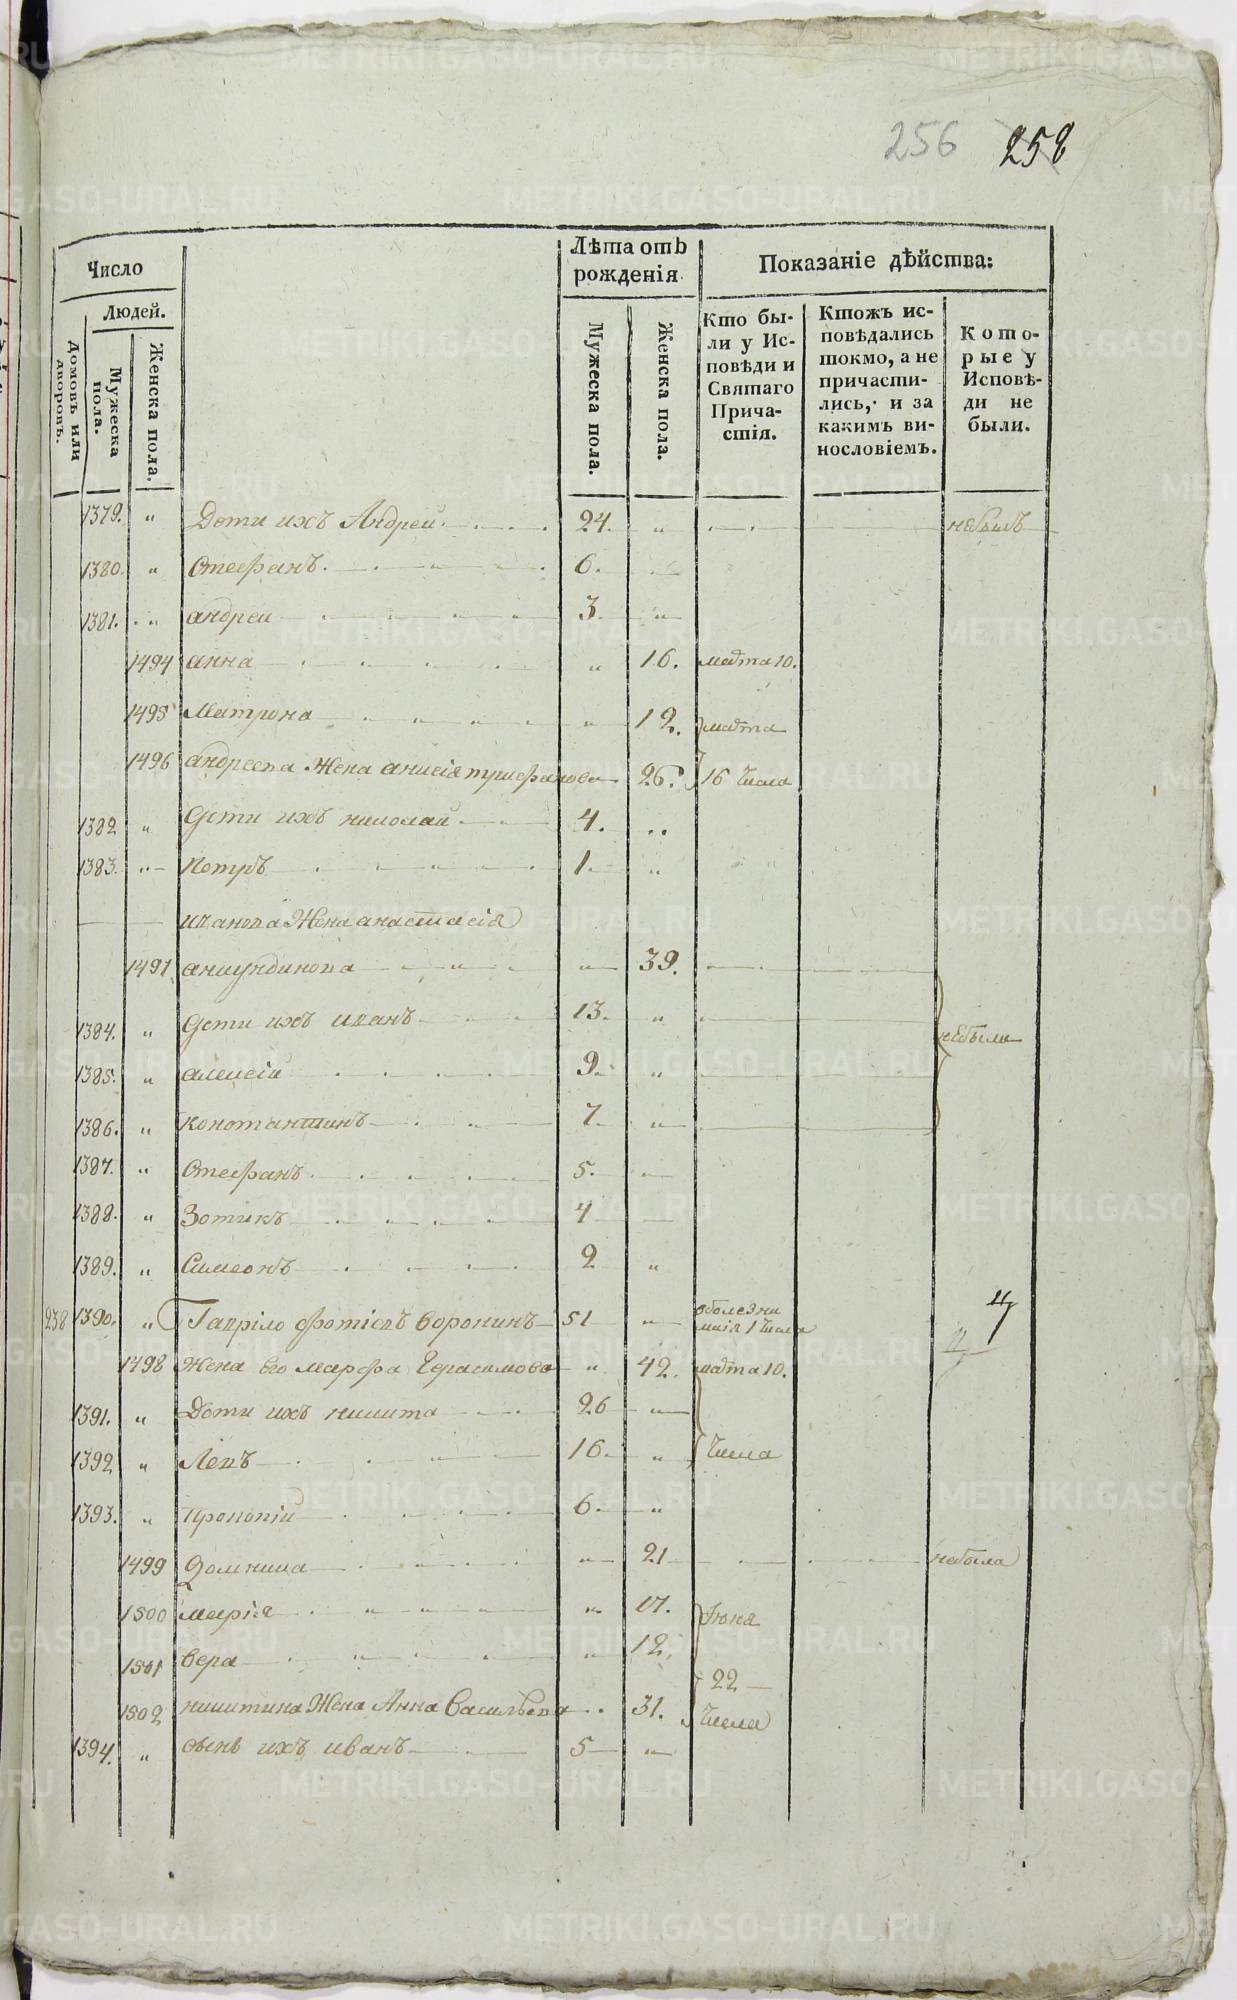 256 258
Число
Людей.
Домовъ или дворовъ.
Мужеска пола.
Женска пола.
Лѣта отъ рожденія.
Мужеска пола.
Женска пола.
Показаніе дѣйства:
Кто были у Исповѣди и Святаго Причастія.
Ктожъ исповѣдались токмо, а не причастились, и за какимъ винословіемъ.
Которые у Исповѣди не были.
1379. " Дети ихъ Андрей 24. " небылъ
1380. " Стефанъ 6.
1381. " андреи 3. "
1494 анна " 16. марта 10.
1495 Матрона " 12. марта
1496 андреева Жена анисія 26. 16 числа
1382 " Дети ихъ николаи 4. "
1383. " Петръ 1. "
иванова Жена анастасія
1497 " 39.
1384. " Дети ихъ иванъ 13. " небыли
1385. " алексіи 9. "
1386. " константинъ 7. "
1387. " Стефанъ 5.
1388. " Зотикъ 4
1389. " Симеонъ 2 "
238 1390. " Гаврило Фотіевъ Воронинъ 51 " маія 1 числа
1498 Жена его марфа Герасимова " 42. марта 10.
1391. " Дети ихъ никита 26 "
1392 " Левъ 16. " числа
1393. " Прокопіи 6. "
1499 Домника " 21 небыла
1500 маріа " 17. Іюня
1501 вера " 12. 22
1502 никитина Жена Анна Васильева " 31. числа
1394. " сынъ ихъ иванъ 5 "
METRIKI.GASO-URAL.RU